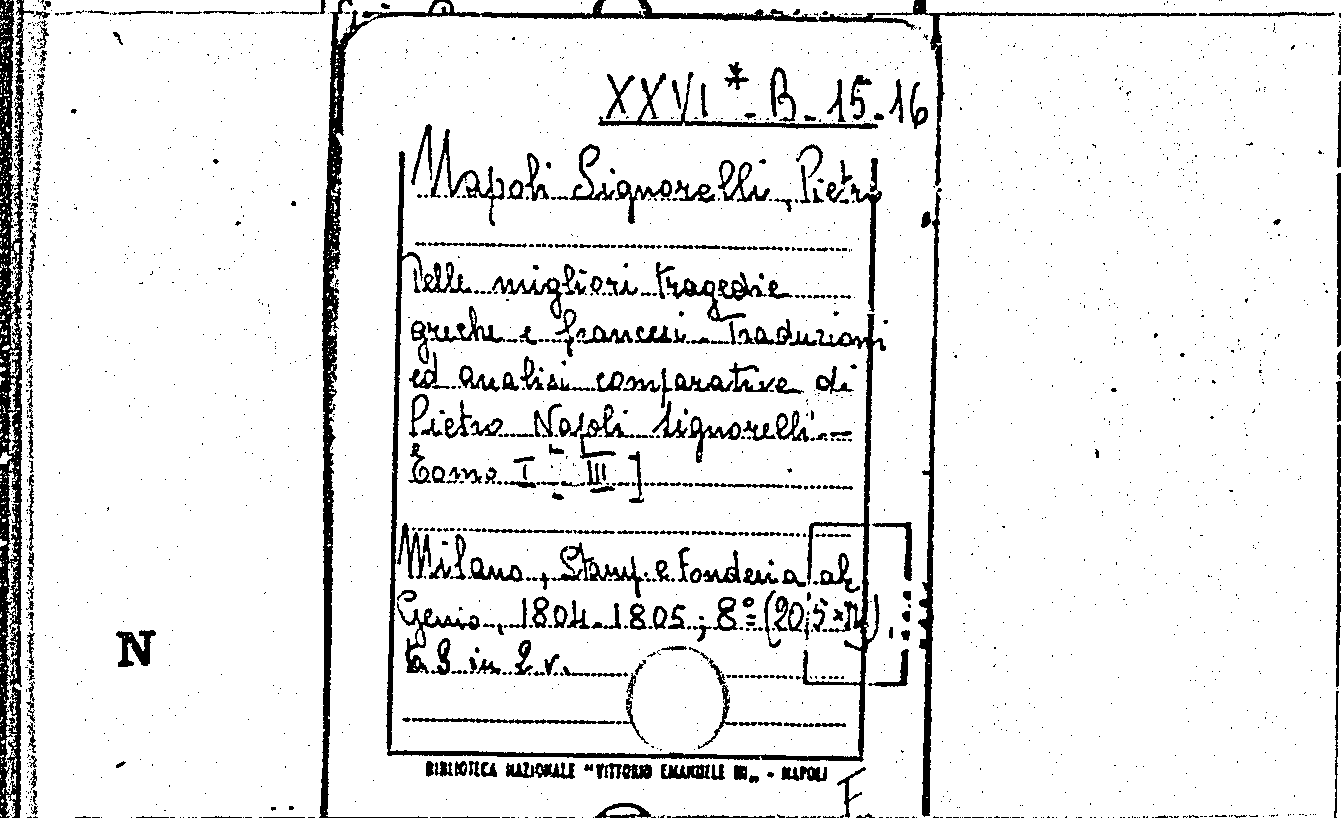 XXVI* - B - 15-16
Napoli Signorelli, Pietro
Delle migliori tragedie
greche e francesi. Traduzioni
ed analisi comparative di
Pietro Napoli Signorelli. —
Tomo I [- III]
Milano, Stamp. e Fonderia al
Genio, 1804-1805; 8º (20,5×12)
to. 3 in 2 v.
N
BIBLIOTECA NAZIONALE "VITTORIO EMANUELE III" - NAPOLI